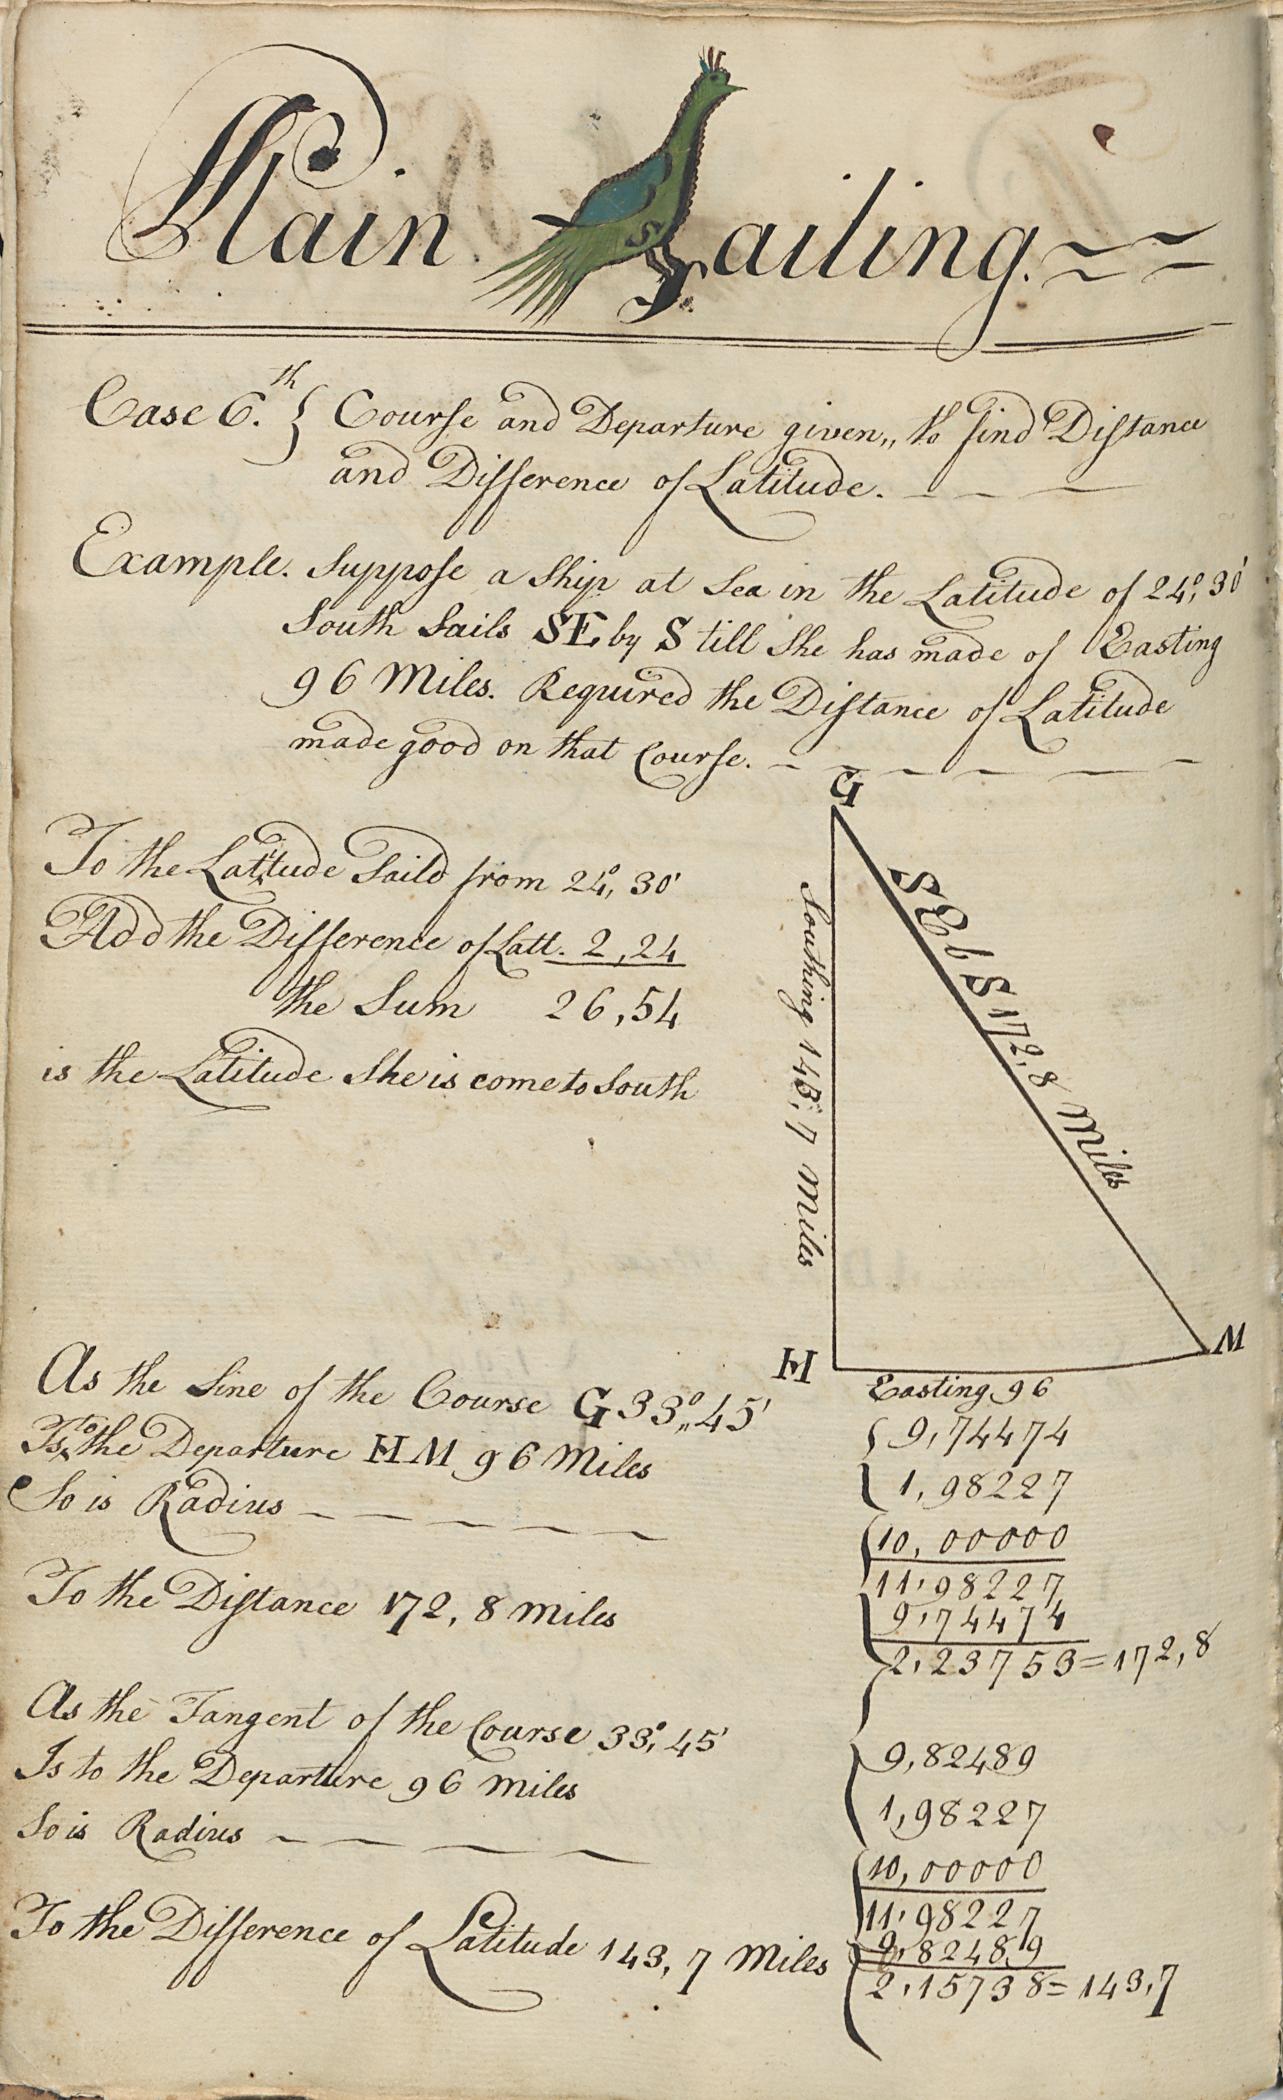 Plain Sailing.
Case 6.th } Course and Departure given,, to find Distance
and Difference of Latitude.
Example. Suppose a Ship at Sea in the Latitude of 24°, 30'
South Sails SE by S till She has made of Easting
96 Miles. Required the Distance of Latitude
made good on that Course.
G
To the Latitude Saild from 24°, 30'
Add the Difference of Latt. 2,24
the Sum 26,54
is the Latitude She is come to South
Southing 143,7 Miles
SEbS 172,8 Miles
H
M
Easting 96
As the Sine of the Course G 33°,,45' 9,74474
Is to the Departure HM 96 Miles 1,98227
So is Radius 10,00000
11,98227
9,74474
To the Distance 172,8 Miles
2,23753=172,8
As the Tangent of the Course 33°,45' 9,82489
Is to the Departure 96 Miles 1,98227
So is Radius 10,00000
11,98227
9,82489
To the Difference of Latitude 143,7 Miles 2,15738=143,7